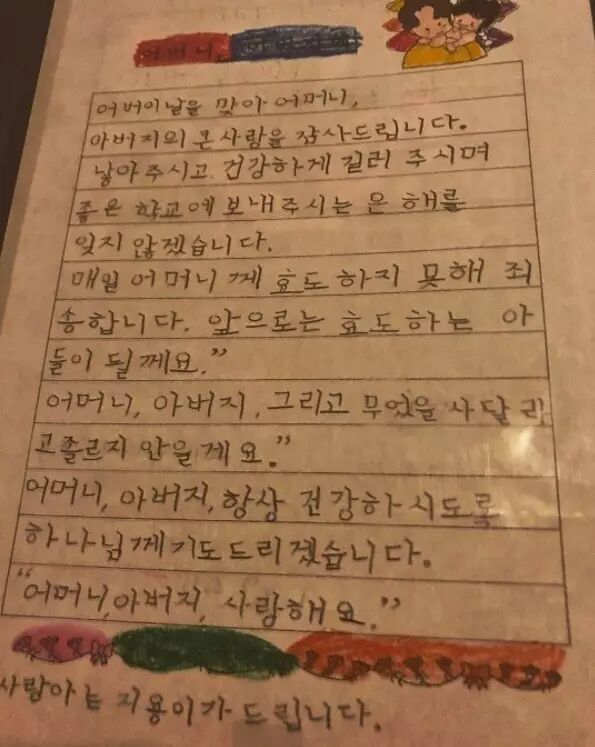 어머니, 아버지께
어버이날을 맞아 어머니,
아버지의 큰사랑을 감사드립니다.
낳아주시고 건강하게 길러 주시며
좋은 학교에 보내주시는 은혜를
잊지 않겠습니다.
매일 어머니께 효도하지 못해 죄
송합니다. 앞으로는 효도하는 아
들이 될께요.”
어머니, 아버지, 그리고 무엇을 사달라
고졸르지 안을게요.”
어머니, 아버지, 항상 건강하시도록
하나님께기도드리겠습니다.
“어머니,아버지, 사랑해요.”
사랑하는 지용이가 드립니다.